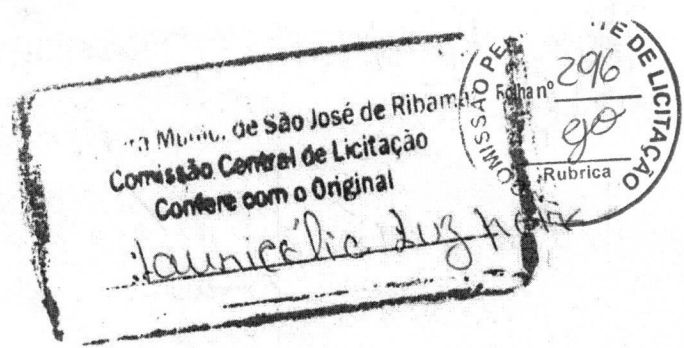 de São José de Ribamar
Comissão Central de Licitação
Confere com o Original
Luz
DE LICITAÇÃO
Folha nº 296
Rubrica